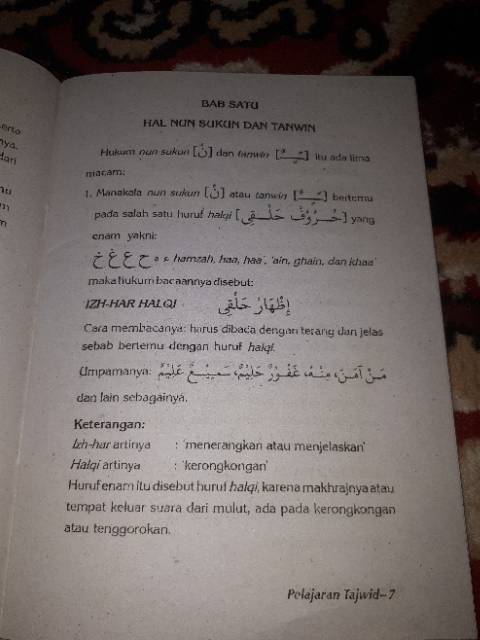 erta
nya.
dari
BAB SATU
HAL NUN SUKUN DAN TANWIN
Hukum nun sukun [نْ] dan tanwin [ـًـٍـٌ] itu ada lima
macam:
1. Manakala nun sukun [نْ] atau tanwin [ـًـٍـٌ] bertemu
pada salah satu huruf halqi [حُـرُوْفُ حَلْـقِى] yang
enam yakni:
ء ه ح ع غ خ hamzah, haa, haa', 'ain, ghain, dan khaa'
maka hukum bacaannya disebut:
IZH-HAR HALQI إِظْهَارْ حَلْقِى
Cara membacanya: harus dibaca dengan terang dan jelas
sebab bertemu dengan huruf halqi.
Umpamanya: مَـنْ آمَـنَ، مِنْـهُ، غَفُـوْرٌ حَلِيْمٌ، سَمِيْـعٌ عَلِيْمٌ
dan lain sebagainya.
Keterangan:
Izh-har artinya : 'menerangkan atau menjelaskan'
Halqi artinya : 'kerongkongan'
Huruf enam itu disebut huruf halqi, karena makhrajnya atau
tempat keluar suara dari mulut, ada pada kerongkongan
atau tenggorokan.
Pelajaran Tajwid–7